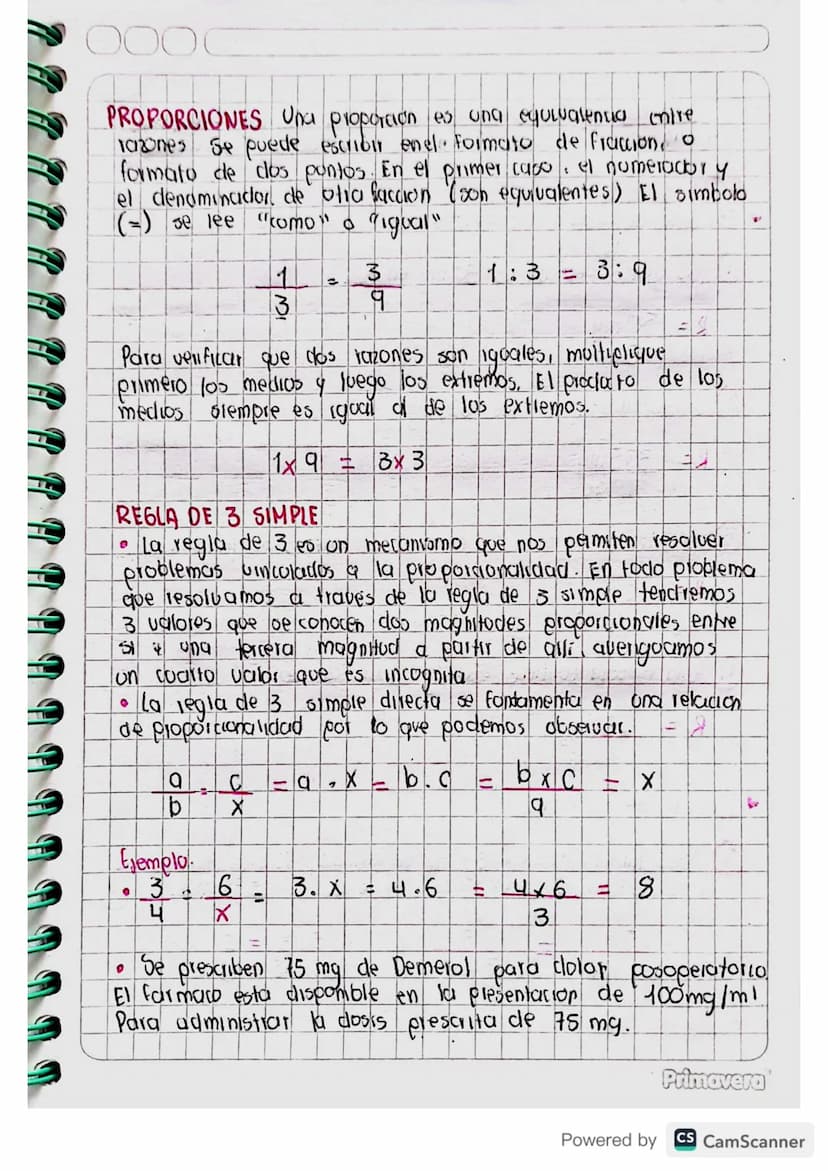 PROPORCIONES Una proporción es una equivalencia entre
razones Se puede escribir en el formato de fracción, o
formato de dos puntos. En el primer caso, el numerador y
el denominador de otra facción (son equivalentes) El simbolo
(=) se lee "como" o "igual"
1/3 = 3/9 1 : 3 = 3 : 9
Para verificar que dos razones son iguales, multiplique
primero los medios y luego los extremos. El producto de los
medios siempre es igual al de los extremos.
1x9 = 3x3
REGLA DE 3 SIMPLE
• La regla de 3 es un mecanismo que nos permiten resolver
problemas vinculados a la proporcionalidad. En todo problema
que resolvamos a través de la regla de 3 simple tendremos
3 valores que se conocen dos magnitudes proporcionales entre
si y una tercera magnitud a partir de allí, averiguamos
un cuarto valor que es incognita
• La regla de 3 simple directa se fundamenta en una relación
de proporcionalidad por lo que podemos observar.
a/b = c/x = a . x = b . c = b x c / a = x
Ejemplo.
• 3/4 = 6/x = 3 . x = 4 . 6 = 4x6/3 = 8
• Se prescriben 75 mg de Demerol para dolor posoperatorio
El farmaco esta disponible en la presentacion de 100mg/ml
Para administrar la dosis prescrita de 75 mg.
Primavera
Powered by CS CamScanner